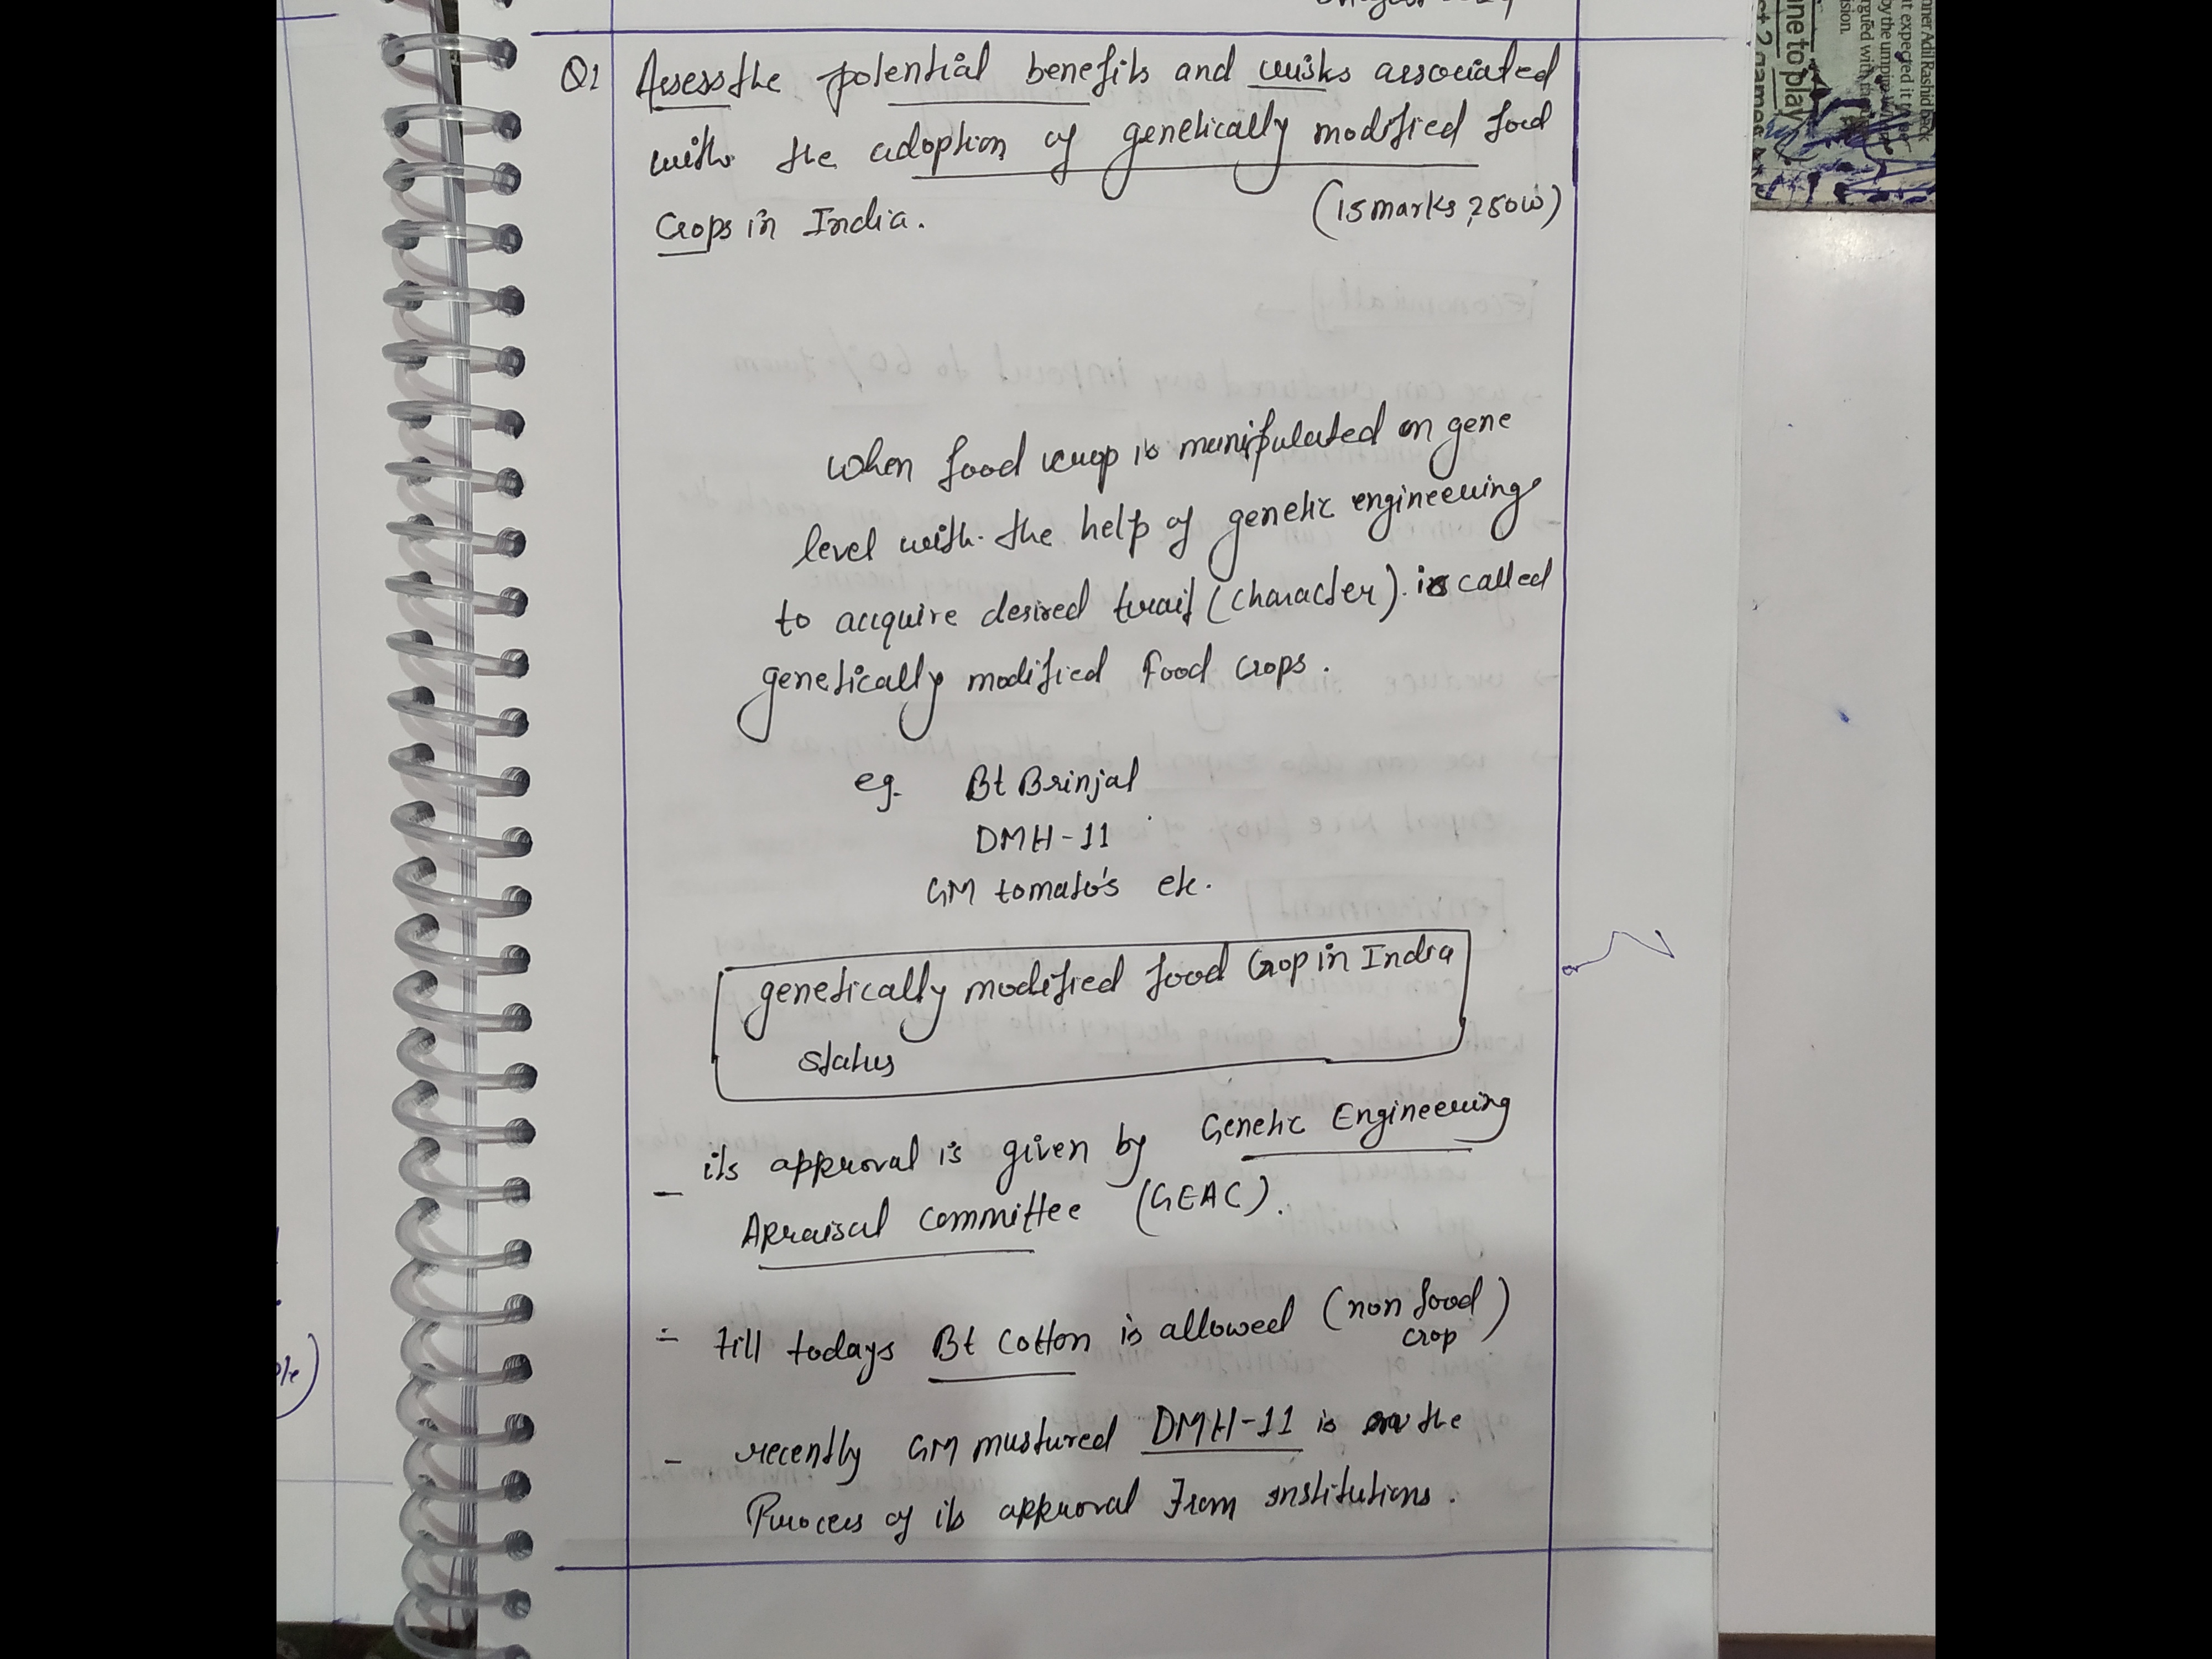 Q1 Assess the potential benefits and risks associated
with the adoption of genetically modified food
Crops in India. (15 marks, 250W)
When food crop is manipulated on gene
level with the help of genetic engineering
to acquire desired trait (character). is called
genetically modified Food Crops.
eg. Bt Brinjal
DMH-11
GM tomato's etc.
genetically modified food Crop in India
status
- its approval is given by Genetic Engineering
Appraisal Committee (GEAC).
- till todays Bt Cotton is allowed (non food
crop)
- recently GM mustured DMH-11 is on the
Process of its approval From institutions.
nner Adil Rashid back
at expected it
by the umpire
argued with
ision.
ne to play
ct 2 games